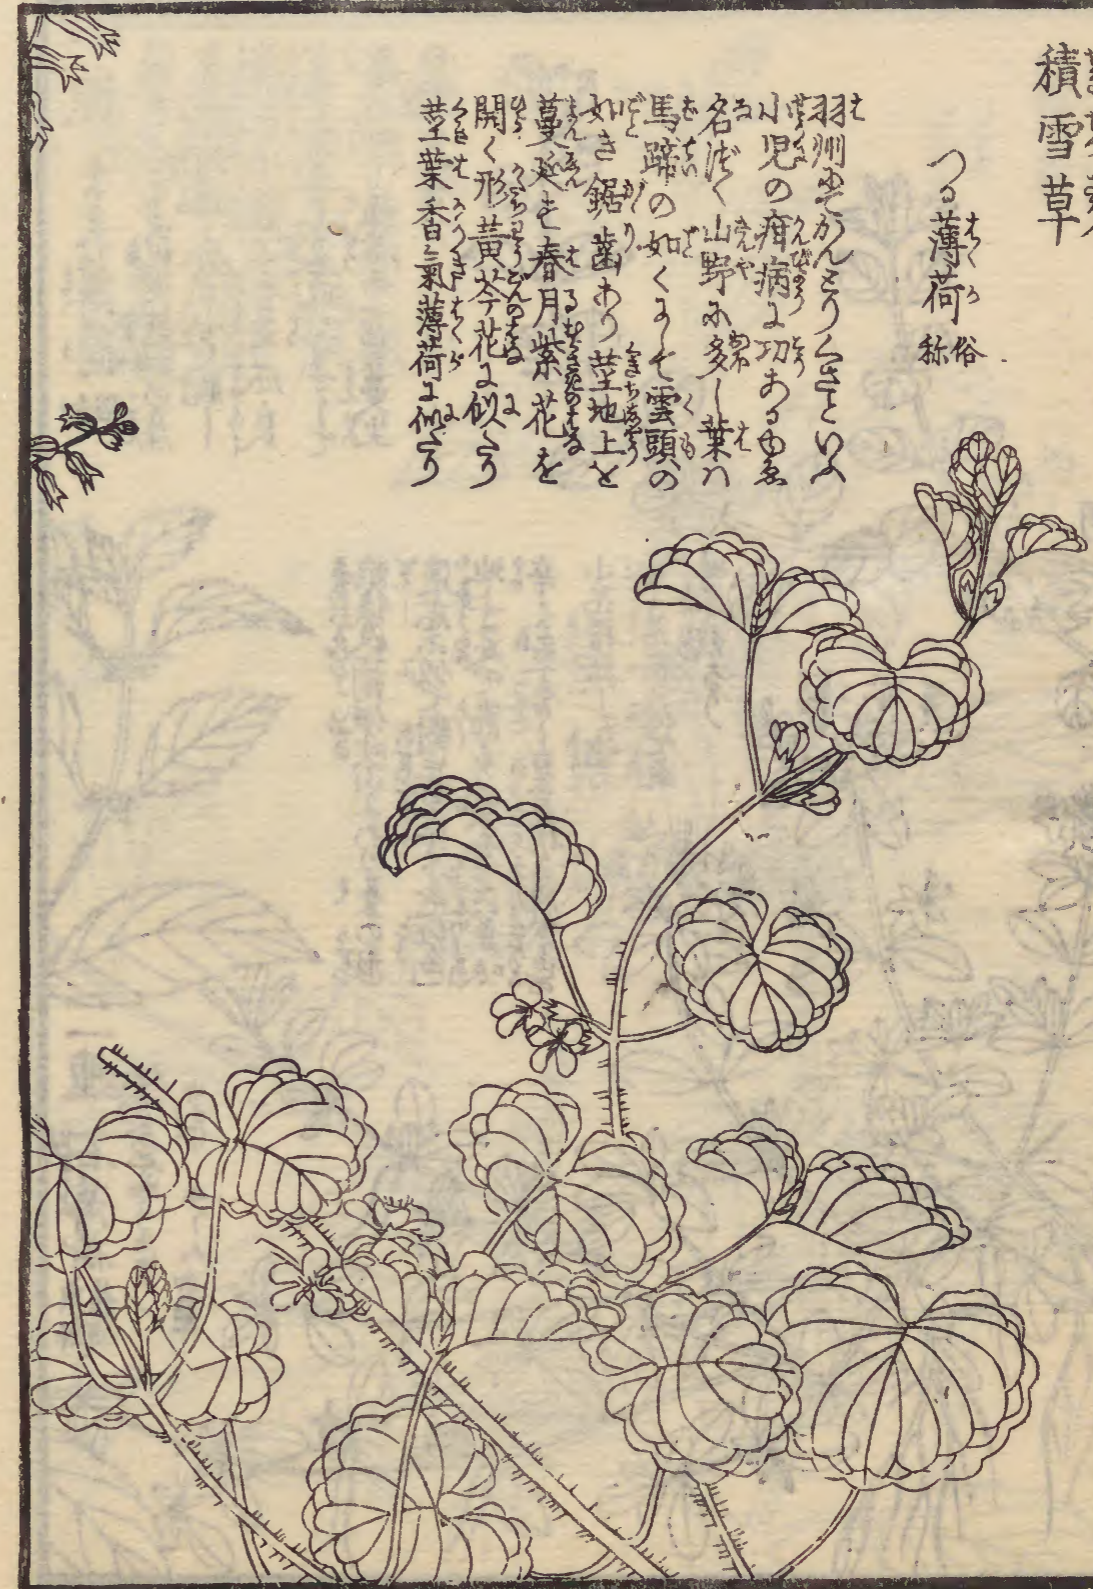 積雪草
つる薄荷 俗称
羽州にてかんとりくさといふ
小児の疳病に功あるゆゑ
名づく山野に多し葉ハ
馬蹄の如くにして雲頭の
如き鋸歯あり茎地上を
蔓延す春月紫花を
開く形黄芩花に似たり
茎葉香氣薄荷に似たり